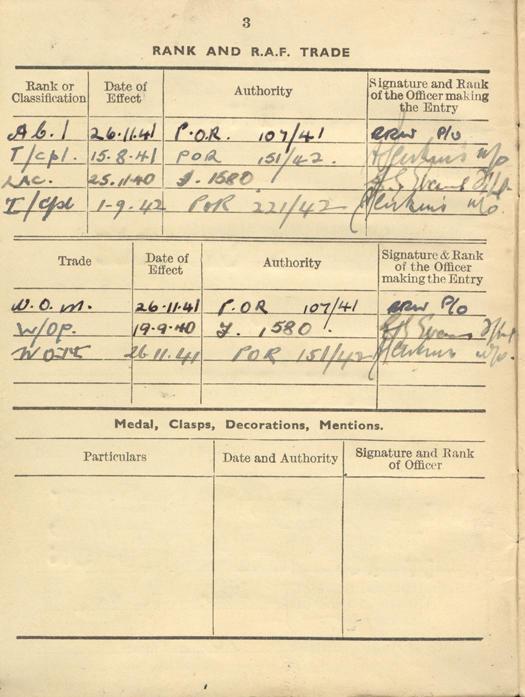 3
RANK AND R.A.F. TRADE
Rank or Classification Date of Effect Authority Signature and Rank of the Officer making the Entry
A.C.1 26.11.41 P.O.R. 107/41 P/O
T/Cpl. 15.8.41 POR 151/42. Jenkins
LAC. 25.11.40 1580 Evans
T/Cpl 1-9.42 POR 221/42 Jenkins
Trade Date of Effect Authority Signature & Rank of the Officer making the Entry
W.O.M. 26.11.41 P.OR 107/41 P/O
W/OP. 19-9.40 1580. Evans
26.11.41 POR 151/42 Jenkins
Medal, Clasps, Decorations, Mentions.
Particulars Date and Authority Signature and Rank of Officer